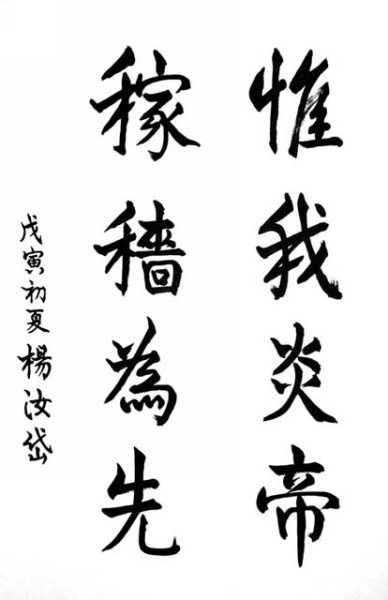 惟我炎帝
稼穡為先
戊寅初夏楊汝岱